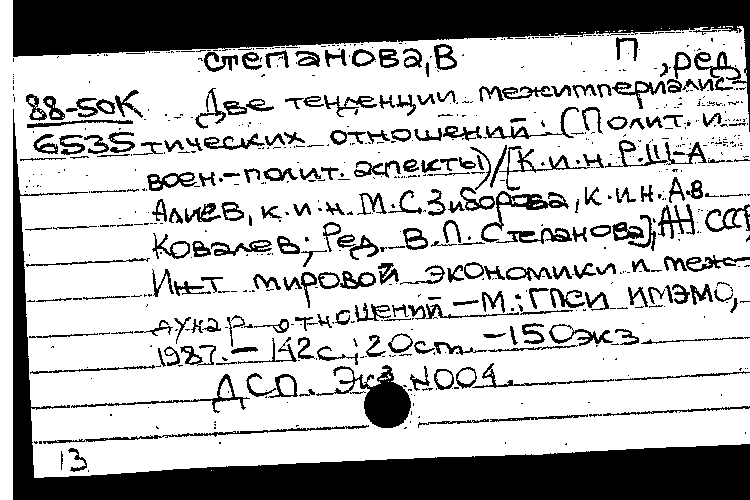 Степанова, В П , ред.
88-50К Две тенденции межимпериалис-
6535 тических отношений: (Полит. и
воен.-полит. аспекты) / [К.и.н. Р.Ш-А.
Алиев, к.и.н. М.С. Зиборова, к.и.н. А.В.
Ковалев; Ред. В.П. Степанова]; АН СССР,
Ин-т мировой экономики и меж-
дунар. отношений. – М.: ГПСИ ИМЭМО,
1987. – 142 с.; 20 см. – 150 экз.
ДСП. Экз. N004.
13